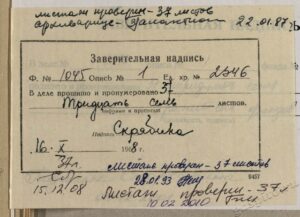 листаж проверен - 37 листов
22.01.87
архивариус -
Заверительная надпись
Ф. № 1045 Опись № 1 Ед. хр. № 2546
В деле прошито и пронумеровано 37
Тридцать семь листов.
цифрами и прописью
Подпись Скрябина
16. X 1968 г.
37л.
15.12.08
листаж проверен - 37 листов
28.01.93
6457
Листаж проверен - 37л
10.02.2010